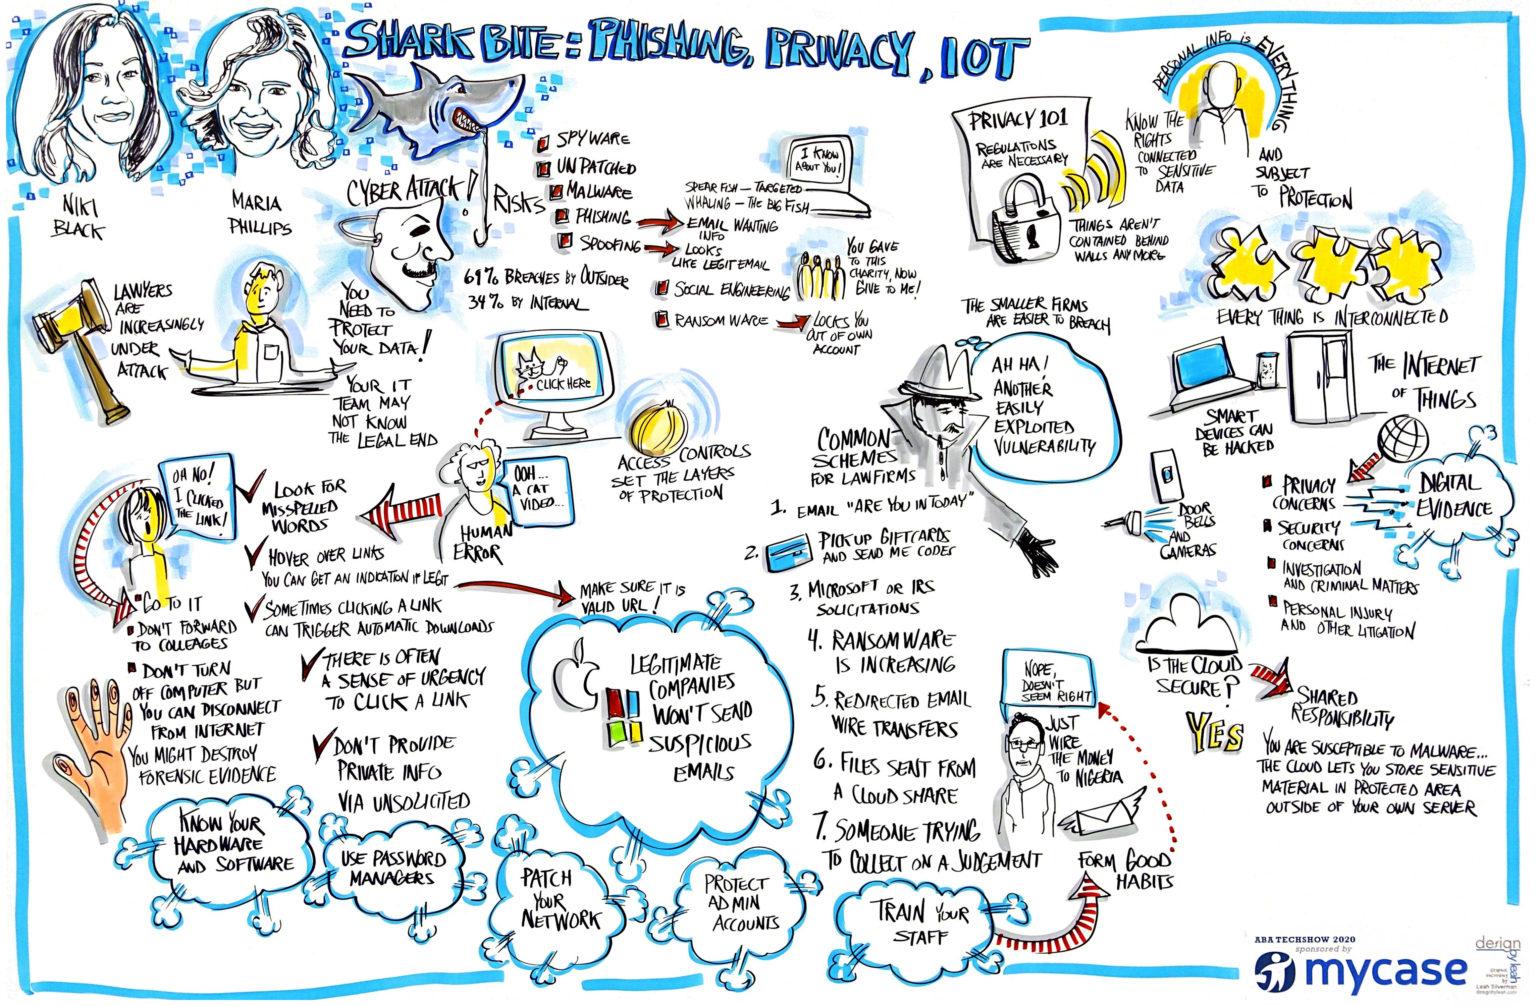 SHARK BITE: PHISHING, PRIVACY, IOT
NIKI
BLACK
MARIA
PHILLIPS
CYBER ATTACK!
RISKS
SPYWARE
UNPATCHED
MALWARE
PHISHING
SPOOFING
SPEAR FISH - TARGETED
WHALING - THE BIG FISH
EMAIL WANTING
INFO
LOOKS
LIKE LEGIT EMAIL
SOCIAL ENGINEERING
RANSOMWARE
LOCKS YOU
OUT OF OWN
ACCOUNT
I KNOW
ABOUT YOU!
YOU GAVE
TO THIS
CHARITY, NOW
GIVE TO ME!
69% BREACHES BY OUTSIDER
34% BY INTERNAL
LAWYERS
ARE
INCREASINGLY
UNDER
ATTACK
YOU
NEED TO
PROTECT
YOUR DATA!
YOUR IT
TEAM MAY
NOT KNOW
THE LEGAL END
CLICK HERE
ACCESS CONTROLS
SET THE LAYERS
OF PROTECTION
OOH...
A CAT
VIDEO...
HUMAN
ERROR
OH NO!
I CLICKED
THE LINK!
LOOK FOR
MISSPELLED
WORDS
HOVER OVER LINKS
YOU CAN GET AN INDICATION IF LEGIT
MAKE SURE IT IS
VALID URL!
SOMETIMES CLICKING A LINK
CAN TRIGGER AUTOMATIC DOWNLOADS
THERE IS OFTEN
A SENSE OF URGENCY
TO CLICK A LINK
DON'T PROVIDE
PRIVATE INFO
VIA UNSOLICITED
GO TO IT
DON'T FORWARD
TO COLLEAGES
DON'T TURN
OFF COMPUTER BUT
YOU CAN DISCONNECT
FROM INTERNET
YOU MIGHT DESTROY
FORENSIC EVIDENCE
LEGITIMATE
COMPANIES
WON'T SEND
SUSPICIOUS
EMAILS
KNOW YOUR
HARDWARE
AND SOFTWARE
USE PASSWORD
MANAGERS
PATCH
YOUR
NETWORK
PROTECT
ADMIN
ACCOUNTS
TRAIN YOUR
STAFF
FORM GOOD
HABITS
THE SMALLER FIRMS
ARE EASIER TO BREACH
AH HA!
ANOTHER
EASILY
EXPLOITED
VULNERABILITY
COMMON
SCHEMES
FOR LAWFIRMS
1. EMAIL "ARE YOU IN TODAY"
2. PICKUP GIFTCARDS
AND SEND ME CODES
3. MICROSOFT OR IRS
SOLICITATIONS
4. RANSOMWARE
IS INCREASING
5. REDIRECTED EMAIL
WIRE TRANSFERS
6. FILES SENT FROM
A CLOUD SHARE
7. SOMEONE TRYING
TO COLLECT ON A JUDGEMENT
NOPE,
DOESN'T
SEEM RIGHT
JUST
WIRE
THE MONEY
TO NIGERIA
PRIVACY 101
REGULATIONS
ARE NECESSARY
THINGS AREN'T
CONTAINED BEHIND
WALLS ANYMORE
KNOW THE
RIGHTS
CONNECTED
TO SENSITIVE
DATA
PERSONAL INFO is EVERYTHING
AND
SUBJECT
TO PROTECTION
EVERY THING IS INTERCONNECTED
THE INTERNET
OF THINGS
SMART
DEVICES CAN
BE HACKED
DOOR
BELLS
AND
CAMERAS
DIGITAL
EVIDENCE
PRIVACY
CONCERNS
SECURITY
CONCERNS
INVESTIGATION
AND CRIMINAL MATTERS
PERSONAL INJURY
AND OTHER LITIGATION
IS THE CLOUD
SECURE?
YES
SHARED
RESPONSIBILITY
YOU ARE SUSCEPTIBLE TO MALWARE...
THE CLOUD LETS YOU STORE SENSITIVE
MATERIAL IN PROTECTED AREA
OUTSIDE OF YOUR OWN SERVER
ABA TECHSHOW 2020
sponsored by
mycase
design
by leah
Leah Silverman